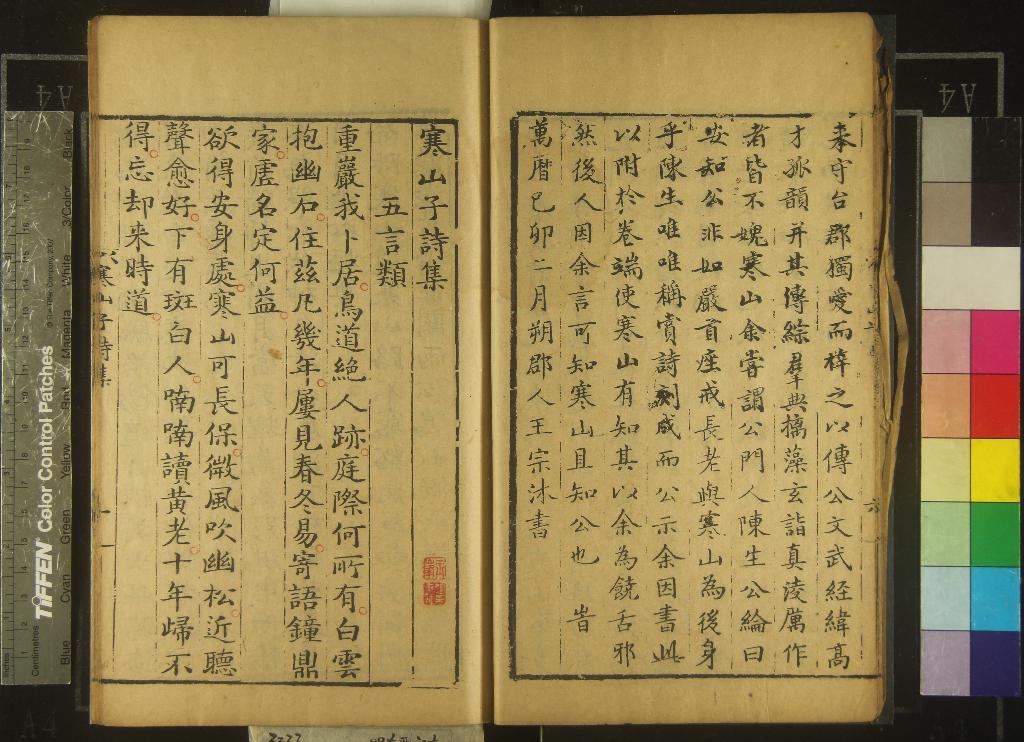 来守台郡獨愛而梓之以傳公文武經緯高
才孤韻并其傳綜羣典摛藻玄詣真淩厲作
者皆不媿寒山余嘗謂公門人陳生公綸曰
安知公非如嚴首座戒長老與寒山為後身
乎陳生唯唯稱賞詩刻成而公示余因書此
以附於卷端使寒山有知其以余為饒舌邪
然後人因余言可知寒山且知公也 旹
萬曆己卯二月朔郡人王宗沐書
寒山子詩集
五言類
重巖我卜居鳥道絶人跡庭際何所有白雲
抱幽石住茲凡幾年屢見春冬易寄語鐘鼎
家虗名定何益
欲得安身處寒山可長保微風吹幽松近聽
聲愈好下有斑白人喃喃讀黄老十年歸不
得忘却来時道
寒山子詩集
一
A4
A4
TIFFEN Color Control Patches
© The Tiffen Company, 2007
Centimetres
Inches
Blue
Cyan
Green
Yellow
Red
Magenta
White
3/Color
Black